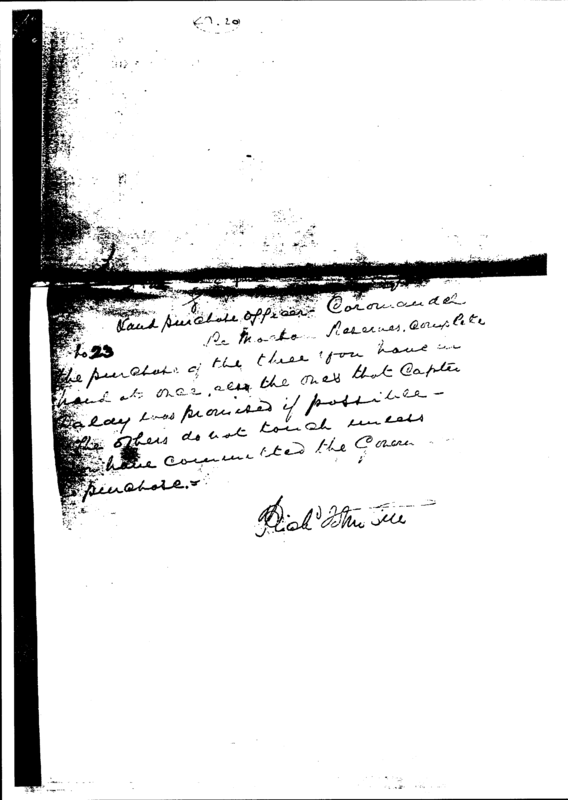 Land purchase officer Coromandel
No 23 Re Manaia Reserves, complete
the purchase of the three you have in
hand at once, also the ones that Captn
Daldy was promised if possible -
The others do not touch unless
have committed the Govern
purchase. -
Rich'd